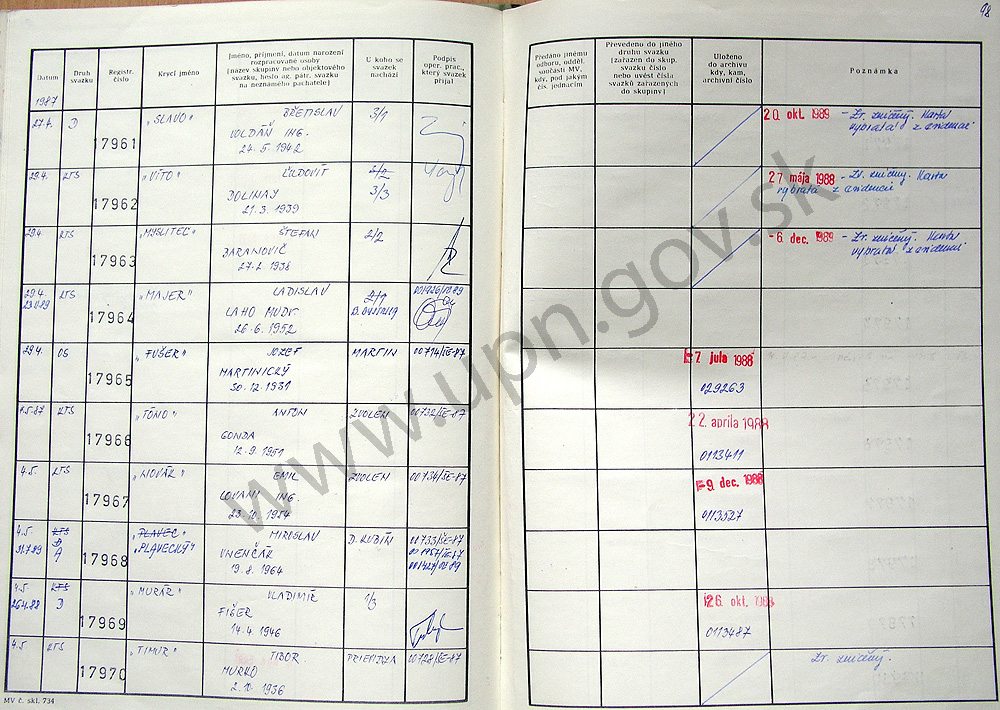 98
Datum
Druh svazku
Registr. číslo
Krycí jméno
Jméno, příjmení, datum narození
rozpracované osoby
(název skupiny nebo objektového
svazku, heslo ag. pátr. svazku
na neznámého pachatele)
U koho se
svazek
nachází
Podpis
oper. prac.,
který svazek
přijal
Předáno jinému
odboru, odděl.
součásti MV,
kdy, pod jakým
čís. jednacím
Převedeno do jiného
druhu svazku
(zařazen do skup.
svazku číslo
nebo uvést čísla
svazků zařazených
do skupiny)
Uloženo
do archivu
kdy, kam,
archivní číslo
Poznámka
1987
D 17961 "SLAVO" BŘETISLAV 3/1
VOLDÁŇ ING.
24. 5. 1942
20. okt. 1989 - Zr. zničený. Karta
vybratá z evidencie
29.4. KTS 17962 "VÍTO" ĽUDOVÍT 3/3
DOLINAY
21. 3. 1939
27 mája 1988 - Zr. zničený. Karta
vybratá z evidencie
29.4. KTS 17963 "MYSLITEĽ" ŠTEFAN 2/2
BARANOVIČ
27. 2. 1938
-6. dec. 1989 - Zr. zničený. Karta
vybratá z evidencie
29.4. KTS 17964 "MAJER" LADISLAV 2/1
LAHO MUDr.
26. 6. 1952
29.4. OS 17965 "FUŠER" JOZEF MARTIN 00714/ŠE-87
MARTINICKÝ
30. 12. 1931
7 júla 1988
029263
4.5.87 KTS 17966 "TÓNO" ANTON ZVOLEN 00732/ŠE-87
GONDA
12. 9. 1951
22. apríla 1988
0113411
4.5. KTS 17967 "NOVÁK" EMIL ZVOLEN 00734/ŠE-87
LOVAŇI ING.
23. 10. 1954
-9. dec. 1988
0113527
4.5. KTS 17968 "PLAVEC" MIROSLAV D. KUBÍN 00733/ŠE-87
31.7.89 D A "PLAVECKÝ" VNENČÁK
19. 8. 1964
4.5 KTS 17969 "MURÁR" VLADIMÍR 1/3
26.4.88 D FIŠER
14. 4. 1946
26. okt. 1988
0113487
4.5 KTS 17970 "TIMUR" TIBOR PRIEVIDZA 00728/ŠE-87
MURKO
2. 10. 1936
Zr. zničený.
MV č. skl. 734
www.upn.gov.sk